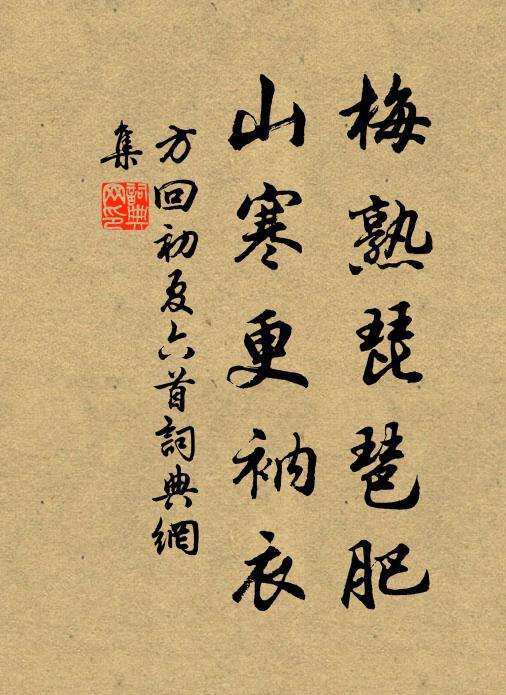 梅熟琵琶肥
山寒更衲衣
方回初夏六首詞典網
集
詞典網印